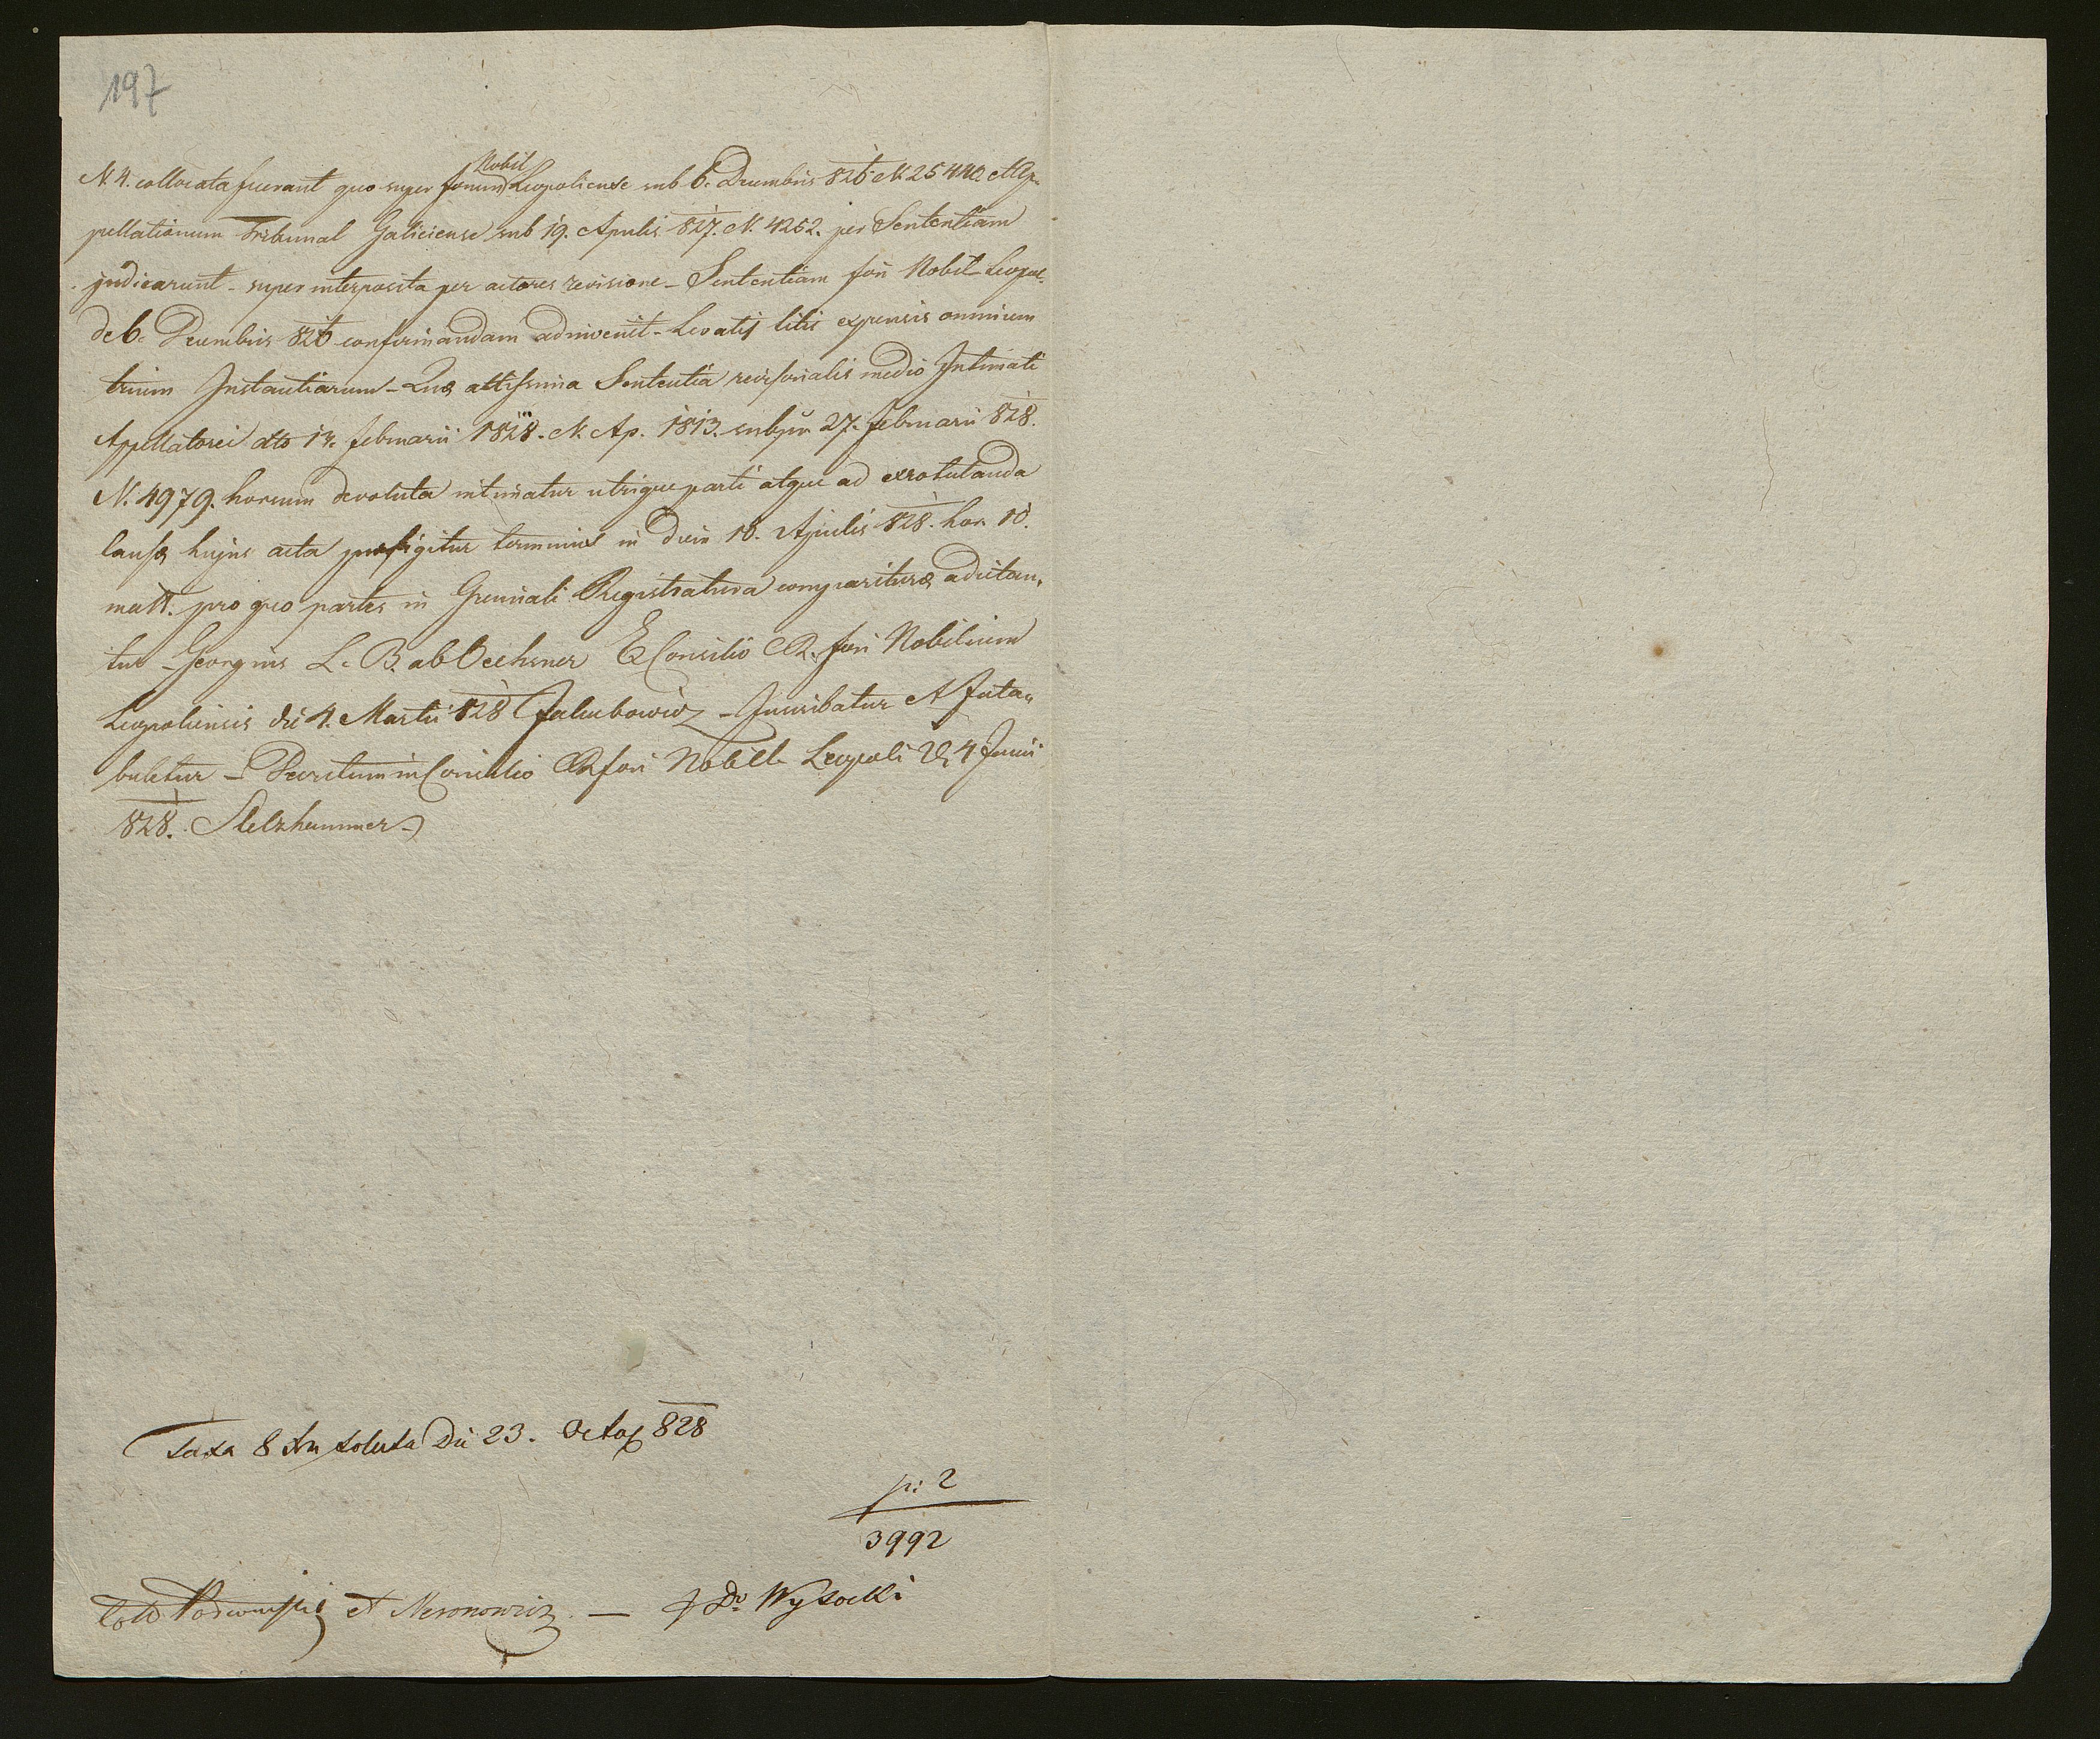 197
N. 4. collocata fuerant quo super forum Nobil Leopoliense sub 6. Decembris 826 N. 25440. Ap-
pellationum Tribunal Galiciense sub 19. Aprilis 827. N. 4252. per Sententiam
judicarunt - super interposita per actores revisione - Sententiam fori Nobil Leopol.
de 6. Decembris 826 confirmandam adinvenit - Levatis litis expensis omnium
trium Instantiarum - Quæ altissima Sententia revisorialis medio Intimati
Appellatorei dto 13. februarii 1828. N. Ap. 1813. subpr 27. februarii 828.
N. 4979. horsum devoluta intimatur utrique parti atque ad exrotulanda
Causæ hujus acta præfigitur terminus in diem 10. Aprilis 828. hor. 10.
matt. pro quo partes in Gremiali Registratura comparituræ adcitan-
tur - Georgius L. B. ab Oechsner E Consilio CR. fori Nobilium
Leopoliensis die 4. Martii 828 Jakubowicz - Inscribatur et Inta-
buletur - Decretum in Consilio CR fori Nobil Leopoli D. 4 Junii
828. Stelzhammer -
Taxa 8 Xr soluta Die 23. Octos 828
p: 2
3992
Coll et Neronowicz. — Dr. Wysocki